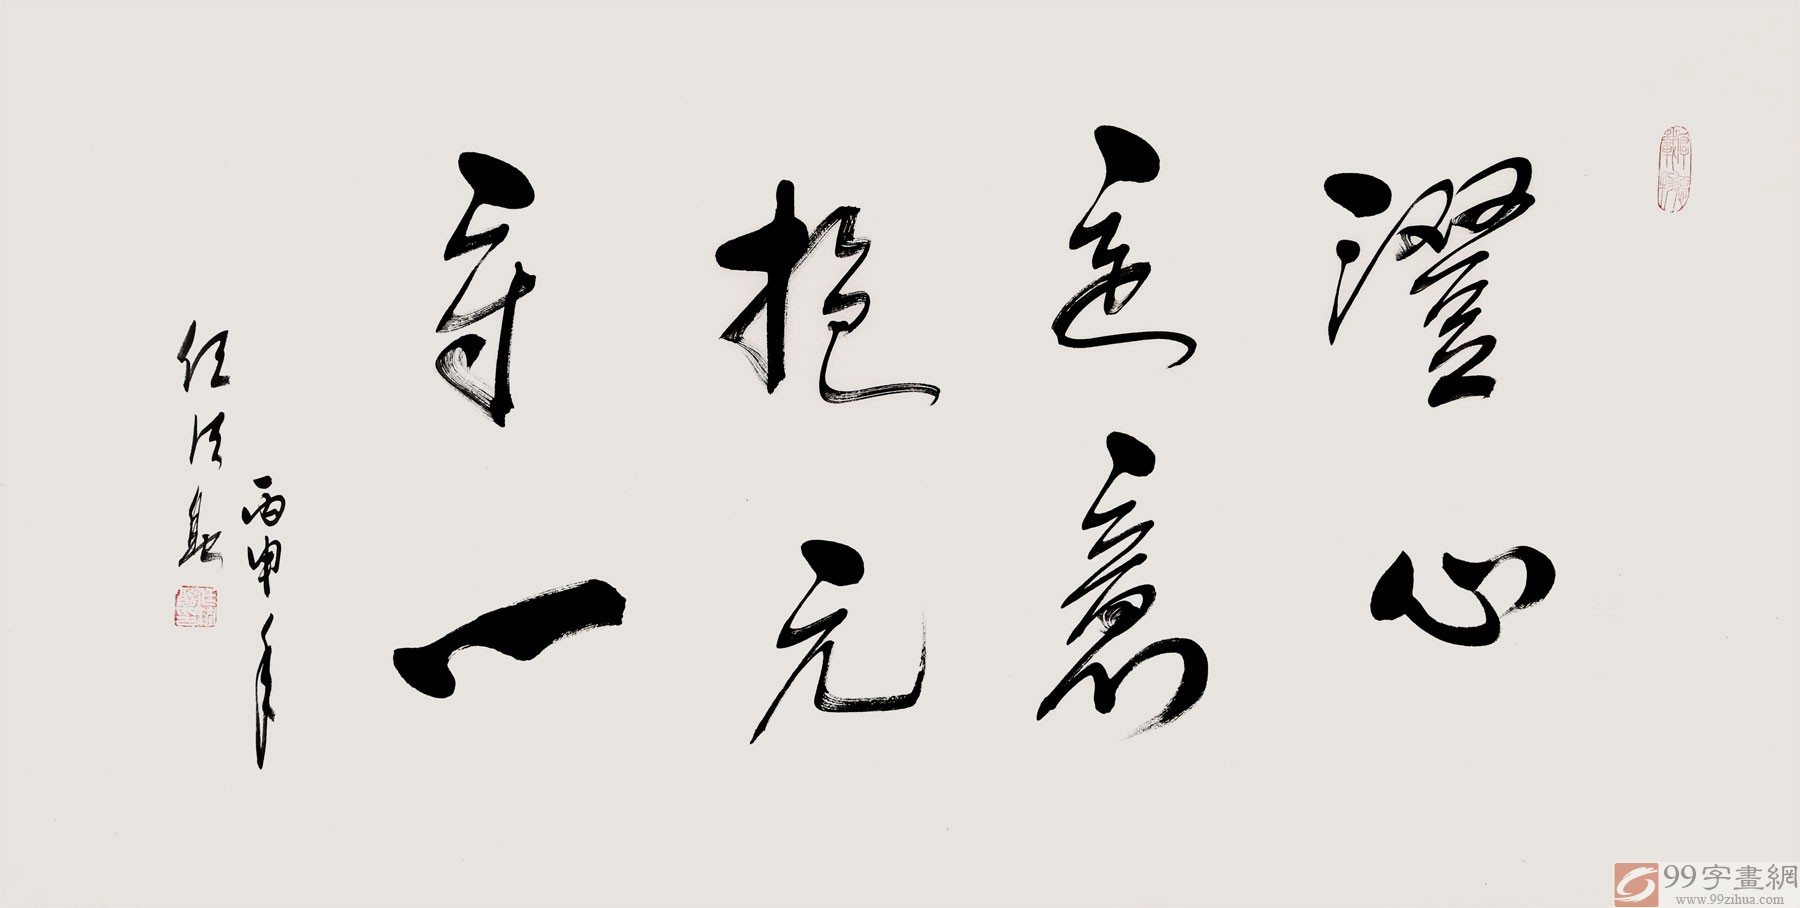 澄心
定意
抱元
守一
丙申年
任法融
99字畫網
www.99zihua.com